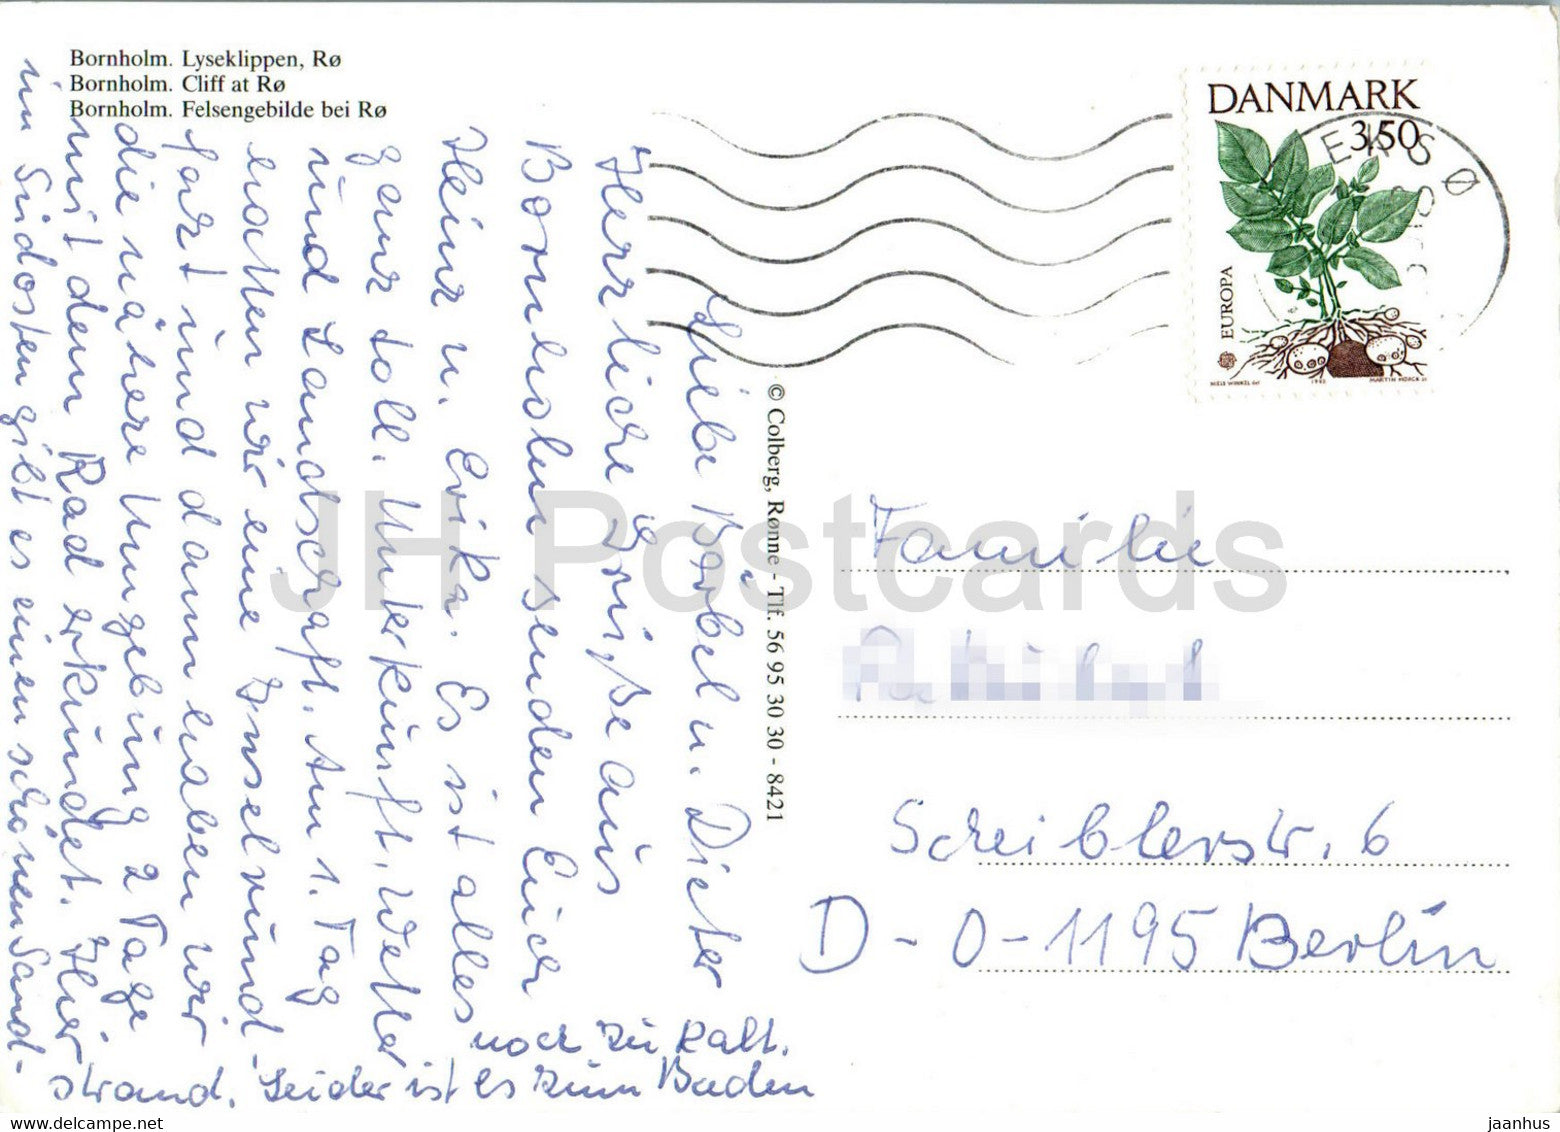 Bornholm. Lyseklippen, Rø
Bornholm. Cliff at Rø
Bornholm. Felsengebilde bei Rø
DANMARK
3,50
EUROPA
NIELS WINKEL del.
1992
MARTIN MÖRCK sc.
Liebe Bärbel u. Dieter
Herrliche Grüße aus
Bornholm senden Euch
Heinz u. Erika. Es ist alles
ganz toll. Unterkunft, Wetter
und Landschaft. Am 1. Tag
machten wir eine Inselrund-
fahrt und dann haben wir
die nähere Umgebung 2 Tage
mit dem Rad erkundet. Hier
im Südosten gibt es einen schönen Sand-
strand. Leider ist es zum Baden
noch zu kalt.
© Colberg, Rønne - Tlf. 56 95 30 30 - 8421
Familie
Scheiblerstr. 6
D-O-1195 Berlin
JH Postcards
www.delcampe.net
jaanhus